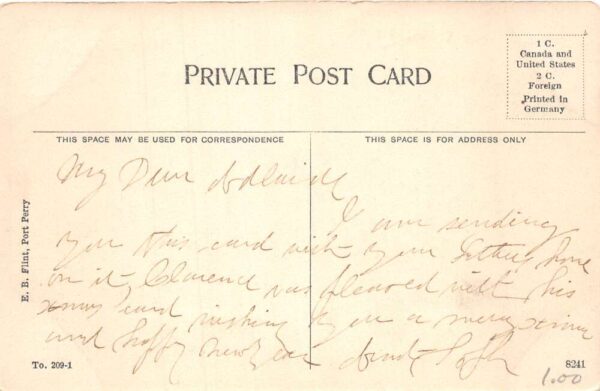 PRIVATE POST CARD
1 C.
Canada and
United States
2 C.
Foreign
Printed in
Germany
THIS SPACE MAY BE USED FOR CORRESPONDENCE
THIS SPACE IS FOR ADDRESS ONLY
My Dear Adelaide
I am sending
you this card with your Fathers home
on it Clarence was pleased with his
xmas card wishing you a merry xmas
and happy New Year
E. B. Flint, Port Perry
To. 209-1
8241
1.00